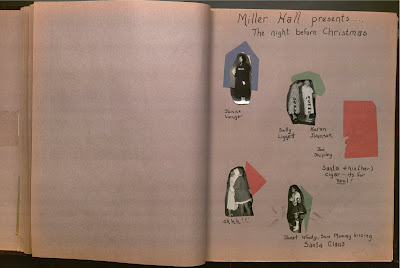 Miller Hall presents....
The night before Christmas
Janice
Sally
Liggett
Karen
Joe
Shipley
Santa & his (her)
cigar—its for
real!
ahhh!!!
Janet Woody, Saw Mommy kissing
Santa Claus